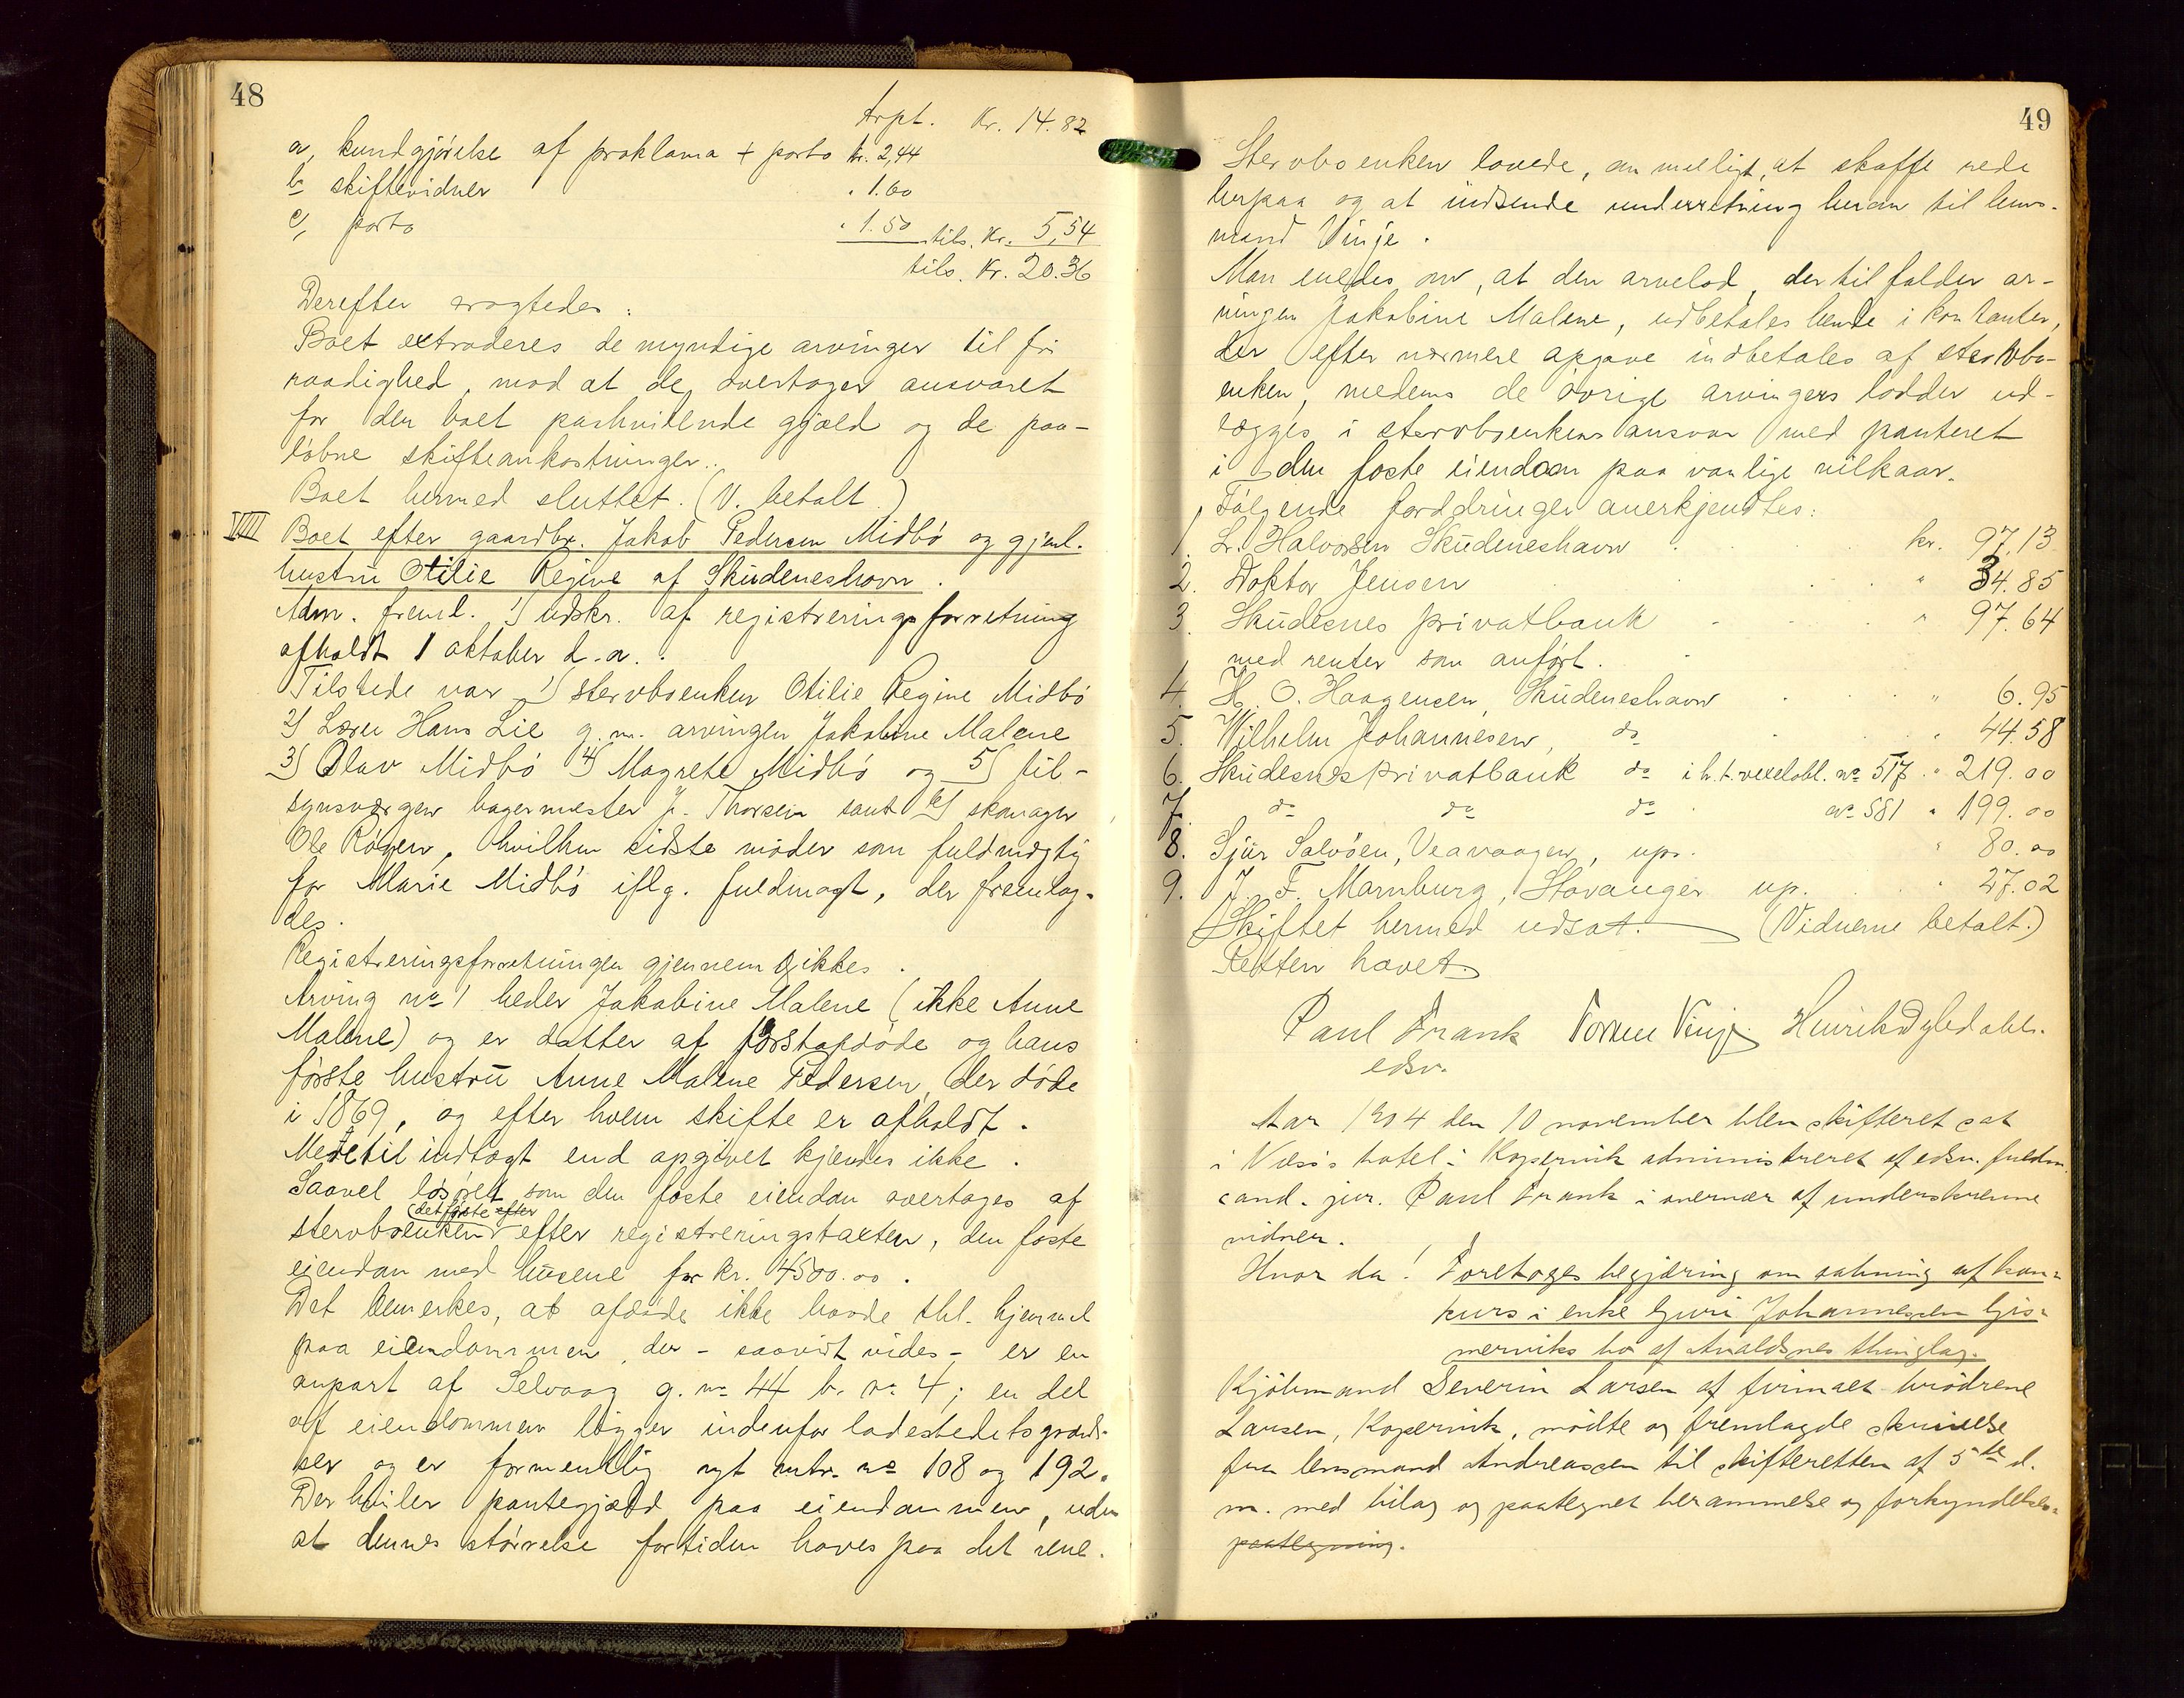 48
Trpt. Kr. 14.82
a, kundgjörelse af proklama + porto kr. 2,44
b skiftevidner " 1.60
c, porto " 1.50 tils. Kr. 5,54
tils. Kr. 20.36
Derefter vragtedes:
Boet extraderes de myndige arvinger til fri
raadighed, mod at de overtager ansvaret
for den boet paahvilende gjæld og de paa-
løbne skifteomkostninger.
Boet hermed sluttet. (V. betalt)
VIII Boet efter gaardbr. Jakob Pedersen Midbö og gjenl.
hustru Otilie Regine af Skudeneshavn.
Adm. freml. 1) udskr. af registreringsforretning
afholdt 1 oktober d.a.
Tilstede var 1) stervboenken Otilie Regine Midbö
2) Lærer Hans Lie g.m. arvingen Jakobine Malene
3) Olav Midbö 4) Magrete Midbö og 5) til-
synsværgen bagermester J. Thorsen samt 6) skomager
Ole Rögen, hvilken sidste möder som fuldmægtig
for Marie Midbö iflg. fuldmagt, der fremlag-
des.
Registreringsforretningen gjennemgikkes.
Arving no 1 heder Jakobine Malene (ikke Anne
Malene) og er datter af förstafdöde og hans
förste hustru Anne Malene Pedersen, der döde
i 1869, og efter hvem skifte er afholdt.
Mere til indtægt end opgivet kjendes ikke.
Saavel lösöret som den faste eiendom overtages af
stervboenken (det förste efter) efter registreringstaxten, den faste
eiendom med husene for kr. 4500.00.
Det bemerkes, at afdöde ikke havde thl. hjemmel
paa eiendommen, der - saavidt vides - er en
anpart af Selvaag g. no 44 b. no 4; en del
af eiendommen ligger indenfor ladestedets grænd-
ser og er formentlig nyt mtr. no 108 og 192.
Der hviler pantegjæld paa eiendommen, uden
at dennes störrelse fortiden haves paa det rene.
49
Stervboenken lovede, om muligt, at skaffe rede
herpaa og at indsende underretning herom til lens-
mand Vinje.
Man enedes om, at den arvelod, der tilfalder ar-
vingen Jakobine Malene, udbetales hende i kontanter,
der efter nærmere opgave indbetales af stervbo-
enken, medens de övrige arvingers lodder ud-
lægges i stervboenkens ansvar med panteret
i den faste eiendom paa vanlige vilkaar.
Fölgende fordringer anerkjendtes:
1. L. Halvorsen Skudeneshavn kr. 97.13
2. Doktor Jensen " 34.85
3. Skudesnes privatbank " 97.64
med renter som anfört.
4. H. O. Haagensen, Skudeneshavn " 6.95
5. Wilhelm Johannesen, do " 44.58
6. Skudesnes privatbank do i h.t. vexelobl. no 517 " 219.00
7. do do do no 581 " 199.00
8. Sjur Salvöen, Veavaagen, up. " 80.00
9. J. F. Marnburg, Stavanger up. " 27.02
Skiftet hermed udsat. (Vidnerne betalt.)
Retten hævet.
Paul Frank Torkel Vinje Henrik Dyledahl.
edsv.
Aar 1904 den 10 november blev skifteret sat
i Næsö's hotel i Kopervik administreret af edsv. fuldm.
cand. jur. Paul Frank i overvær af underskrevne
vidner.
Hvor da! Foretoges begjæring om aabning af kon-
kurs i enke Guri Johannesen Gis-
merviks bo af Avaldsnes thinglag.
Kjöbmand Severin Larsen af firmaet brödrene
Larsen, Kopervik, mödte og fremlagde skrivelse
fra lensmand Andreassen til skifteretten af 5te d.
m. med bilag og paategnet berammelse og forkyndelses-
paategning.